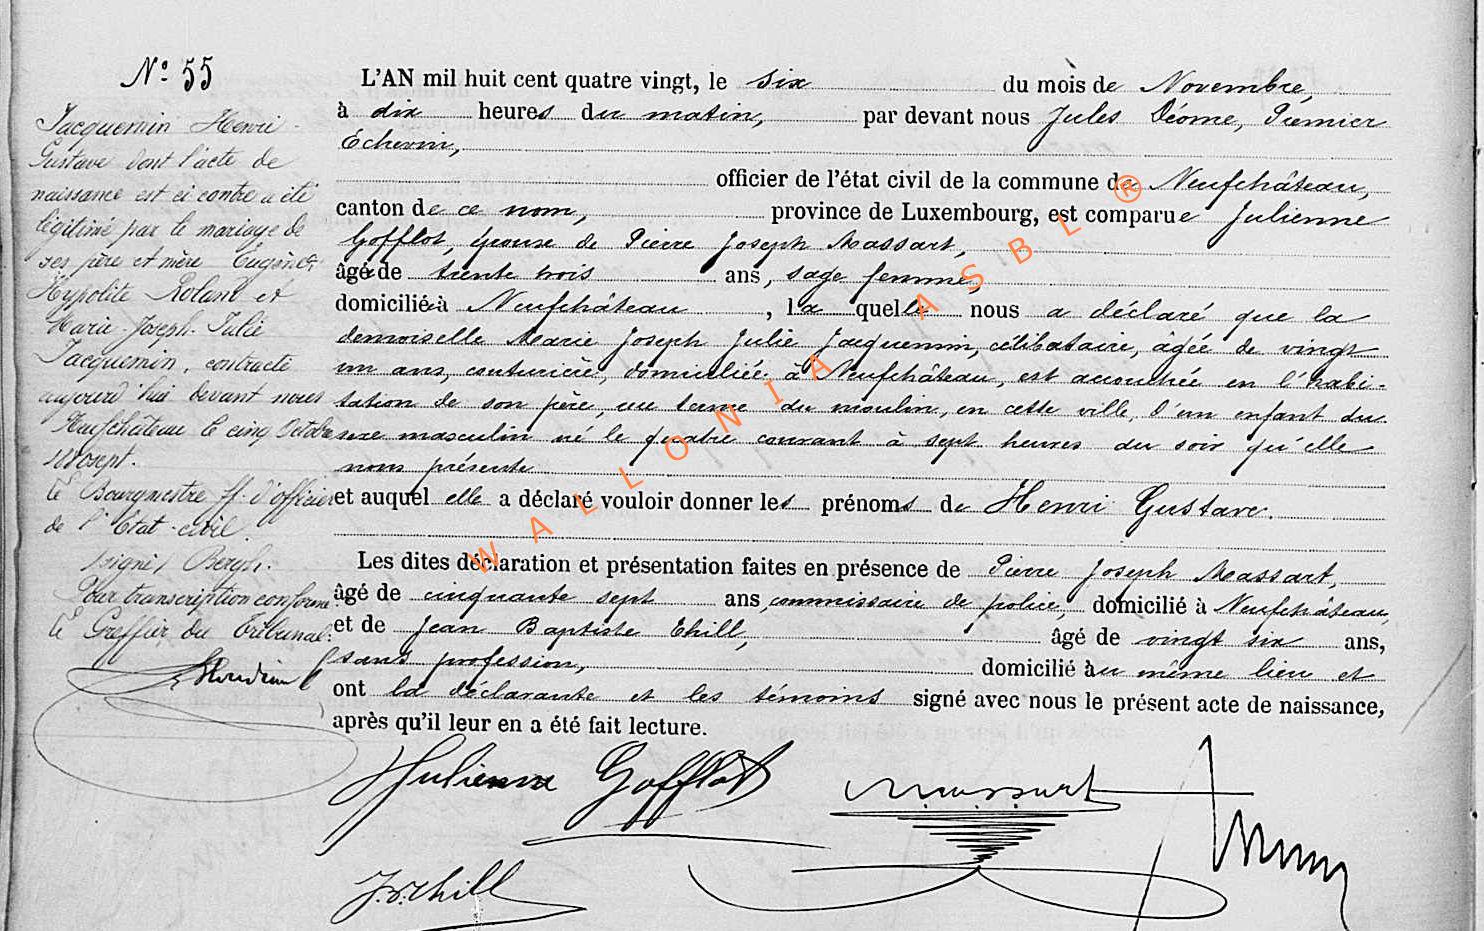 Nº 55
Jacquemin Henri-
Gustave dont l'acte de
naissance est ci contre a été
légitimé par le mariage de
ses père et mère Eugène
Hypolite Roland et
Marie-Joseph-Julie
Jacquemin, contracté
aujourd'hui devant nous
Neufchâteau le cinq Octobre
sept.
Le Bourgmestre ff. d'officier
de l'Etat-civil.
signé/ Bergh.
Pour transcription conforme.
Le Greffier du Tribunal:
L'AN mil huit cent quatre vingt, le six du mois de Novembre,
à dix heures du matin, par devant nous Jules Déome, Premier
Échevin,
officier de l'état civil de la commune de Neufchâteau,
canton de ce nom, province de Luxembourg, est comparue Julienne
Gofflot, épouse de Pierre Joseph Massart,
âgée de trente trois ans, sage femme,
domiciliée à Neufchâteau, laquelle nous a déclaré que la
demoiselle Marie Joseph Julie Jacquemin, célibataire, âgée de vingt
un ans, couturière, domiciliée à Neufchâteau, est accouchée en l'habi-
tation de son père, au terme du moulin, en cette ville, d'un enfant du
sexe masculin né le quatre courant à sept heures du soir qu'elle
nous présente
et auquel elle a déclaré vouloir donner les prénoms de Henri Gustave.
Les dites déclaration et présentation faites en présence de Pierre Joseph Massart,
âgé de cinquante sept ans, commissaire de police, domicilié à Neufchâteau,
et de Jean Baptiste Thill, âgé de vingt six ans,
sans profession, domicilié au même lieu et
ont la déclarante et les témoins signé avec nous le présent acte de naissance,
après qu'il leur en a été fait lecture.
Julienne Gofflot
Massart
J.B. Thill
WALLONIA ASBL ®